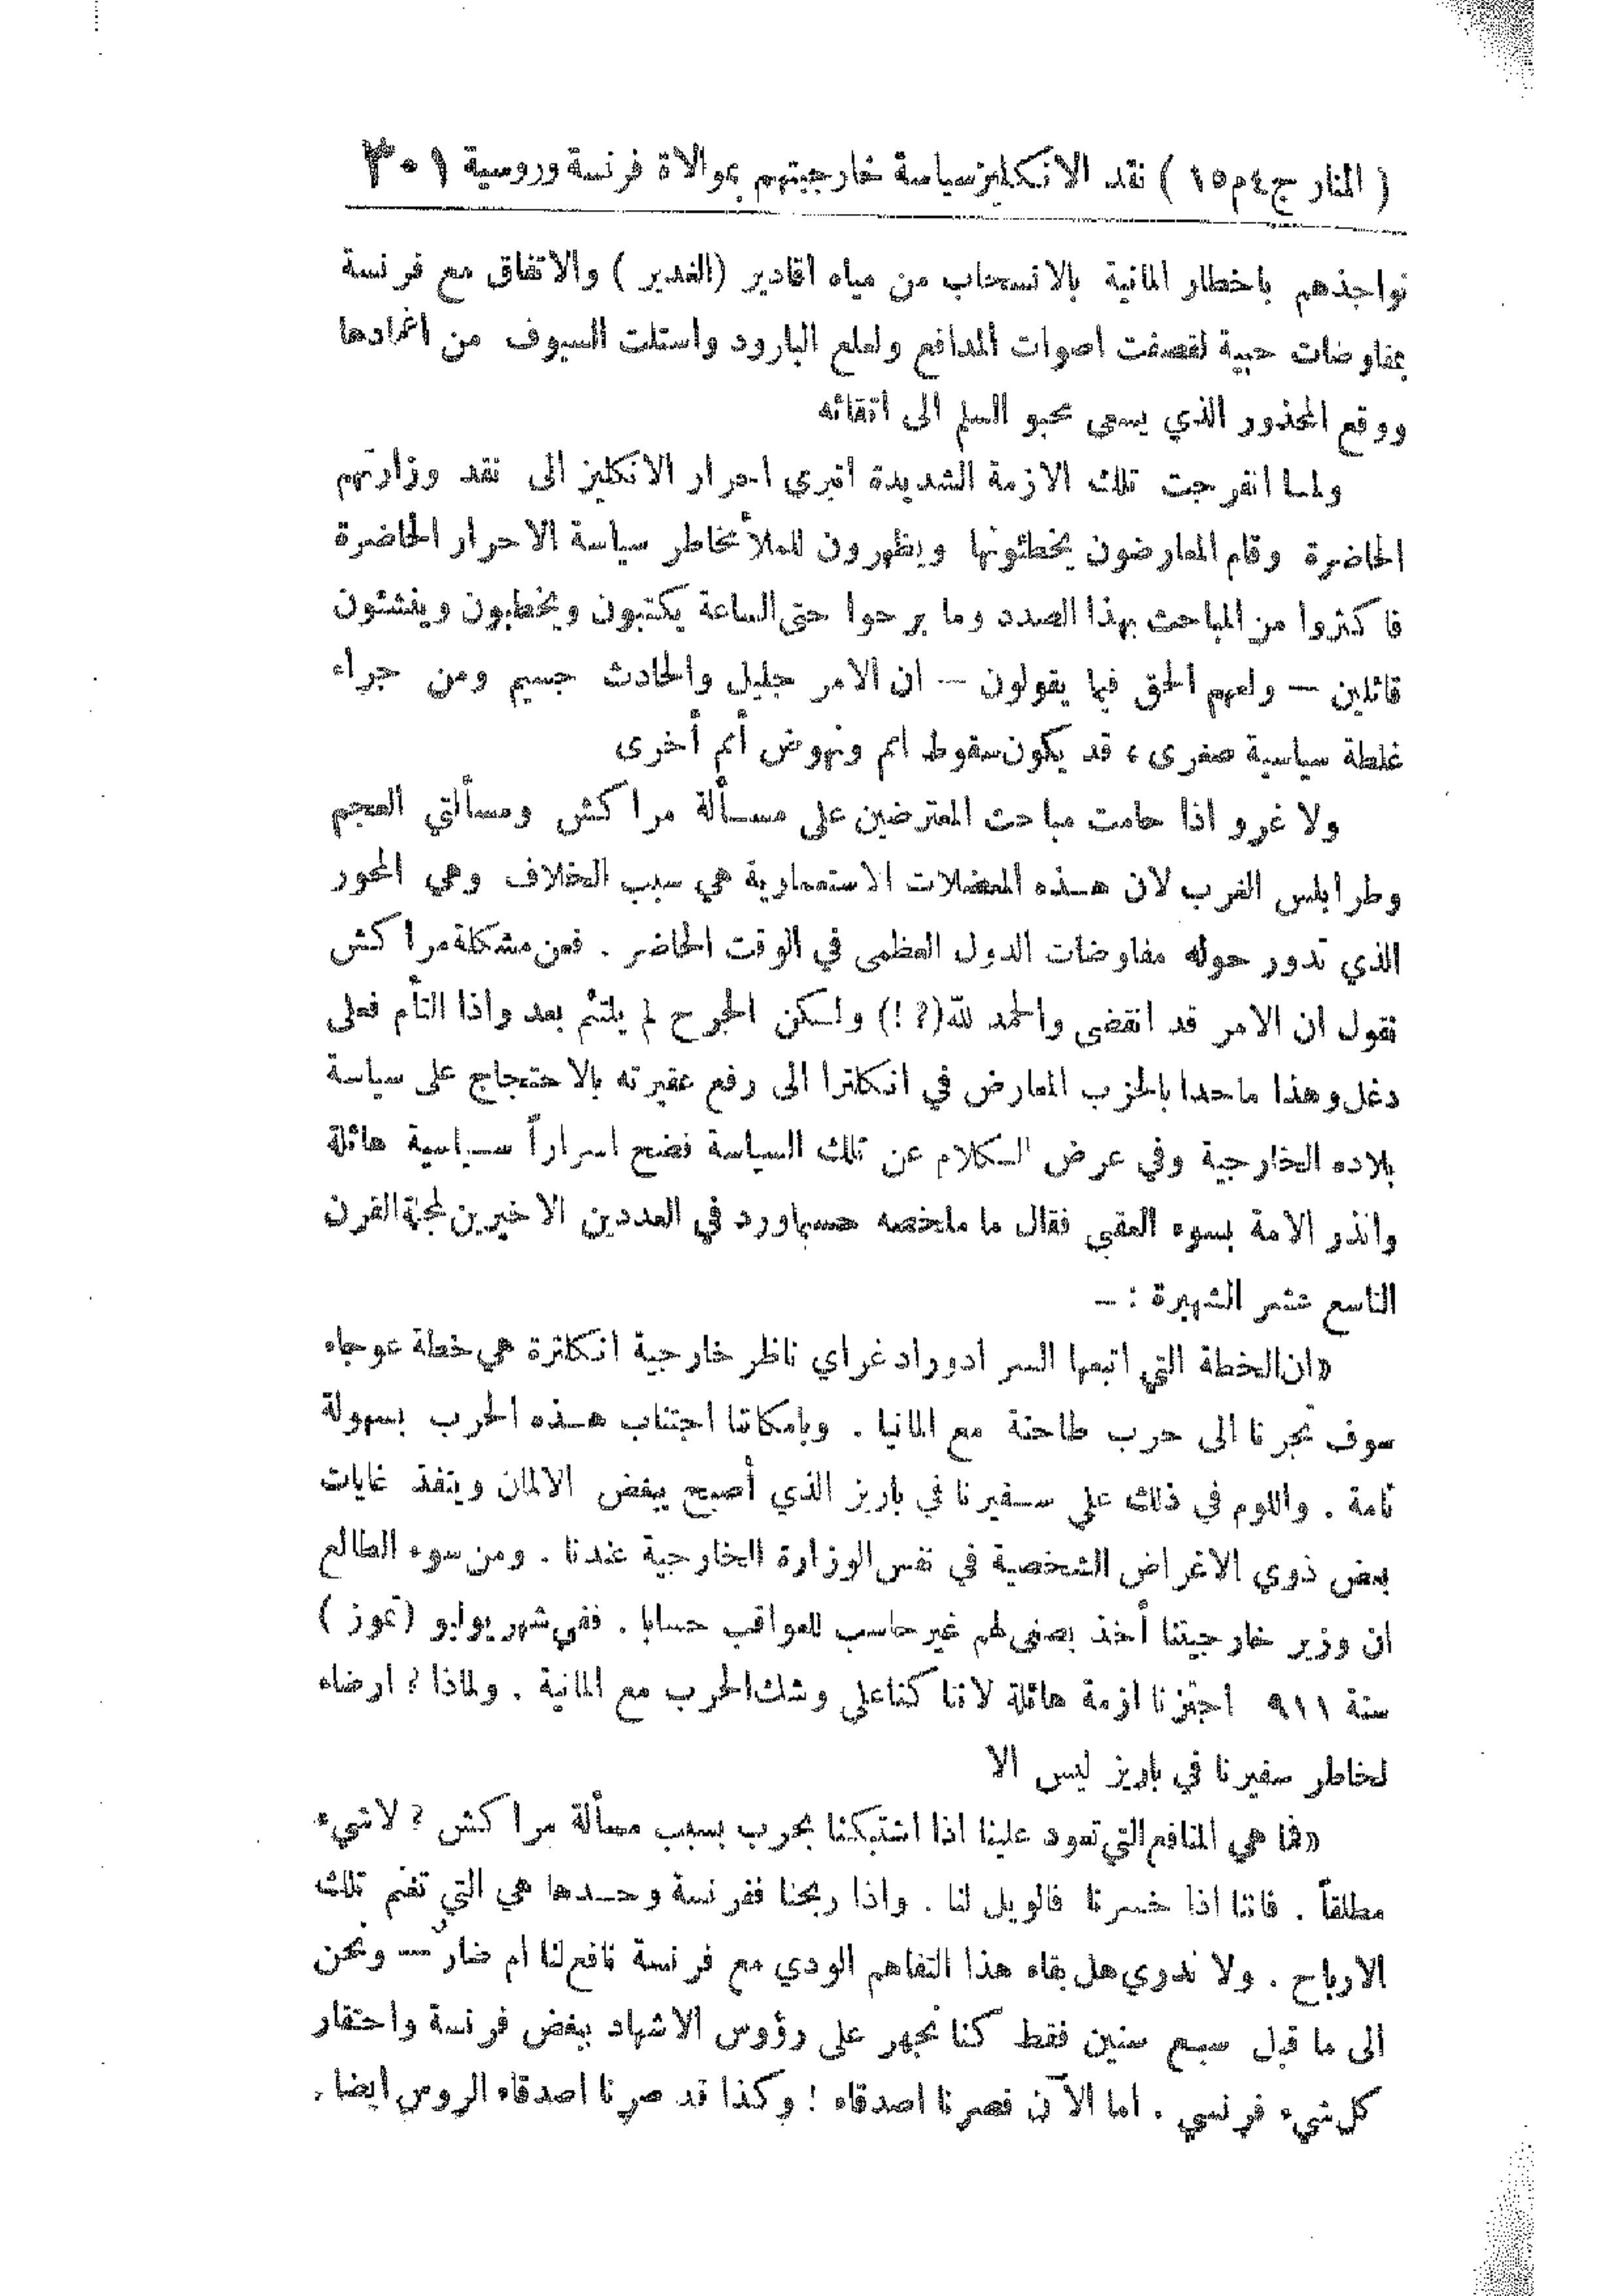 ( المنار ج٤م١٥ ) نقد الانكليز سياسة خارجيتهم بموالاة فرنسة وروسية ٣٠١
نواجذهم باخطار المانية بالانسحاب من مياه اقادير (الغدير ) والاتفاق مع فرنسة
بمفاوضات حبية لقصفت اصوات المدافع ولعلع البارود واستلت السيوف من اغمادها
ووقع المحذور الذي يسعى محبو السلم الى اتقائه
ولما انفرجت تلك الازمة الشديدة انبرى احرار الانكليز الى نقد وزارتهم
الحاضرة وقام المعارضون يخطئونها ويظهرون للملأ مخاطر سياسة الاحرار الحاضرة
فاكثروا من المباحث بهذا الصدد وما برحوا حتى الساعة يكتبون ويخطبون وينشئون
قائلين — ولعلهم الحق فيما يقولون — ان الامر جليل والحادث جسيم ومن جراء
غلطة سياسية صغرى ، قد يكون سقوط امم ونهوض أمم أخرى
ولا غرو اذا حامت مباحث المعترضين على مسألة مراكش ومسألتي العجم
وطرابلس الغرب لان هذه المعضلات الاستعمارية هي سبب الخلاف وهي المحور
الذي تدور حوله مفاوضات الدول العظمى في الوقت الحاضر . فعن مشكلة مراكش
نقول ان الامر قد انقضى والحمد لله(؟!) ولكن الجرح لم يلتئم بعد واذا التأم فعلى
دغل وهذا ما حدا بالحزب المعارض في انكلترا الى رفع عقيرته بالاحتجاج على سياسة
بلاده الخارجية وفي عرض الكلام عن تلك السياسة فضح اسراراً سياسية هائلة
وانذر الامة بسوء العقبى فقال ما ملخصه حسبما ورد في العددين الاخيرين لمجلة القرن
التاسع عشر الشهيرة : —
«ان الخطة التي اتبعها السر ادوراد غراي ناظر خارجية انكلترة هي خطة عوجاء
سوف تجرنا الى حرب طاحنة مع المانيا . وبامكاننا اجتناب هذه الحرب بسهولة
تامة . واللوم في ذلك على سفيرنا في باريز الذي أصبح يبغض الالمان وينفذ غايات
بعض ذوي الاغراض الشخصية في نفس الوزارة الخارجية عندنا . ومن سوء الطالع
ان وزير خارجيتنا أخذ يصغي لهم غير حاسب للعواقب حسابا . ففي شهر يوليو (تموز )
سنة ٩١١ اجتزنا ازمة هائلة لاننا كنا على وشك الحرب مع المانية . ولماذا ؟ ارضاء
لخاطر سفيرنا في باريز ليس الا
«فما هي المنافع التي تعود علينا اذا اشتبكنا بحرب بسبب مسألة مراكش ؟ لاشيء
مطلقاً . فاننا اذا خسرنا فالويل لنا . واذا ربحنا ففرنسة وحدها هي التي تغنم تلك
الارباح . ولا ندري هل بقاء هذا التفاهم الودي مع فرنسة نافع لنا ام ضارّ — ونحن
الى ما قبل سبع سنين فقط كنا نجهر على رؤوس الاشهاد ببغض فرنسة واحتقار
كل شيء فرنسي . اما الآن فصرنا اصدقاء ! وكذا قد صرنا اصدقاء الروس ايضا .